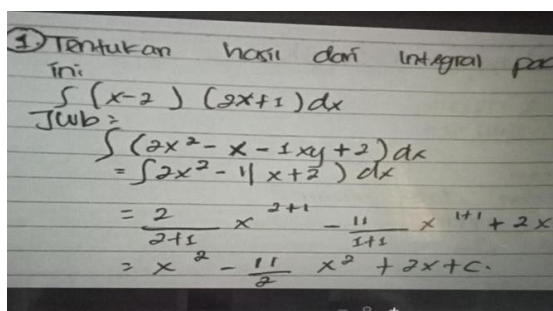 1. Tentukan hasil dari Integral pac
ini
∫ (x-2) (2x+1) dx
Jwb =
∫ (2x² - x - 1xy + 2) dx
= ∫2x² - 11 x + 2) dx
= 2/2+1 x 2+1 - 11/1+1 x 1+1 + 2x
= x² - 11/2 x² + 2x + c.